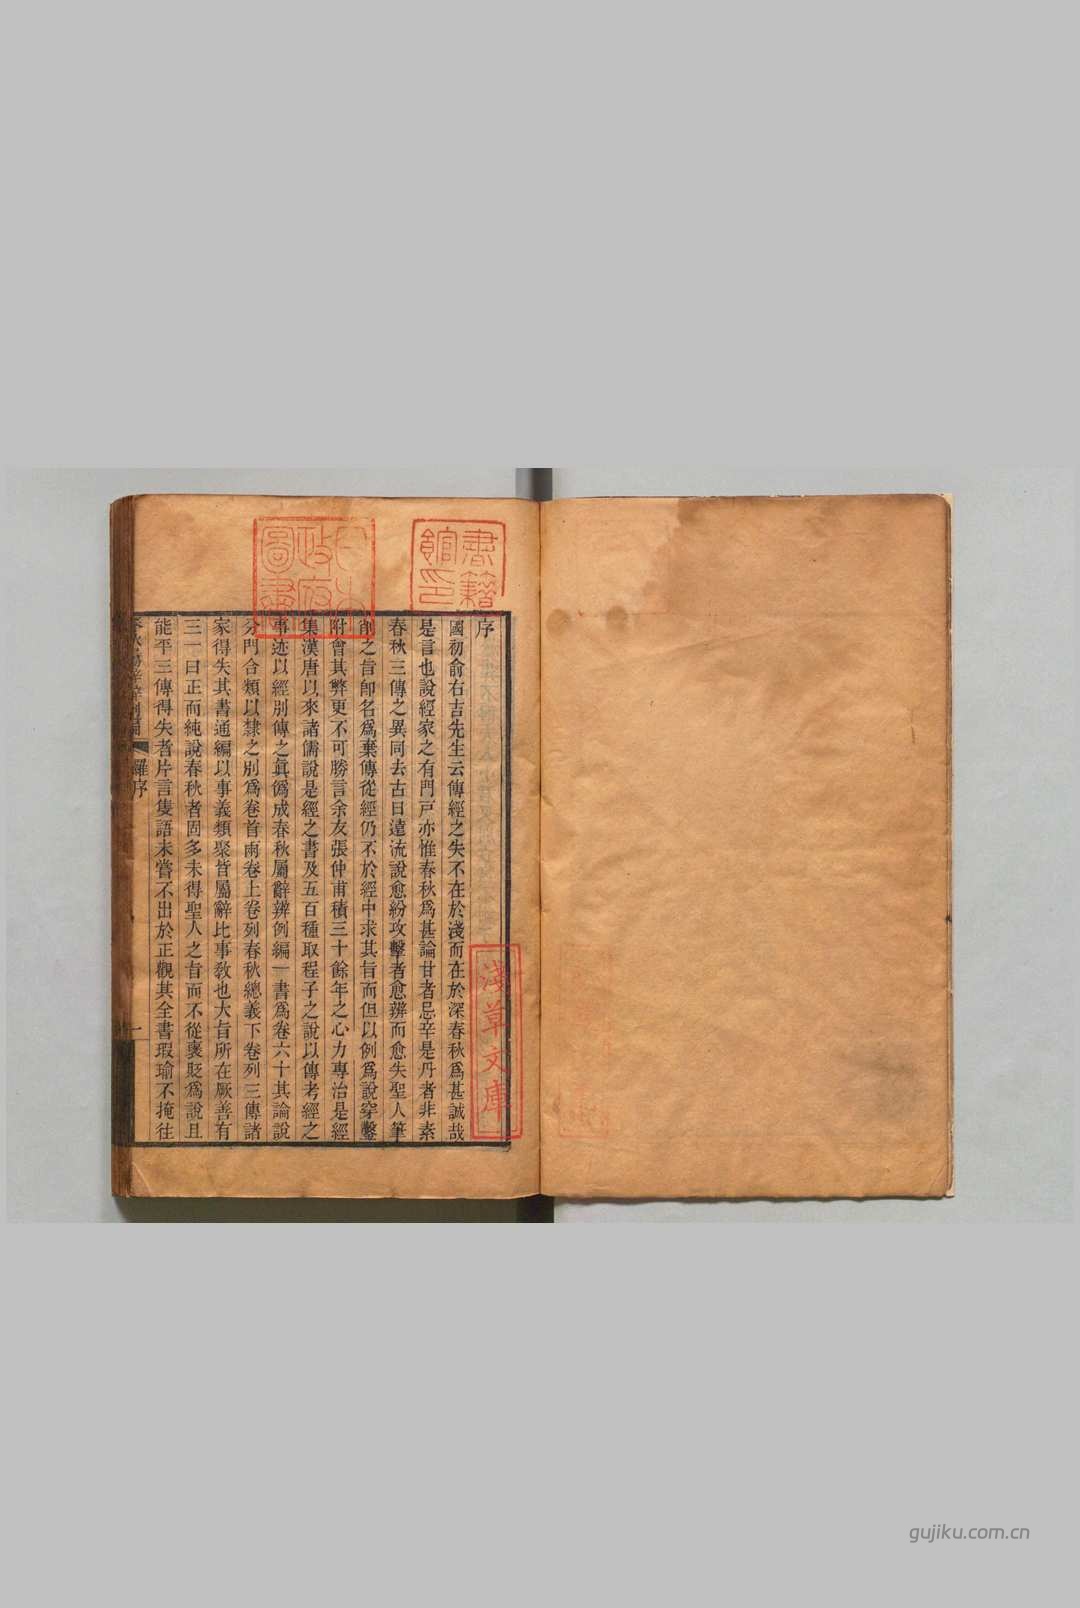 序
國初俞右吉先生云傳經之失不在於淺而在於深春秋爲甚誠哉
是言也說經家之有門戸亦惟春秋爲甚論甘者忌辛是丹者非素
春秋三傳之異同去古日遠流說愈紛攻擊者愈辨而愈失聖人筆
削之旨卽名爲棄傳從經仍不於經中求其旨而但以例爲說穿鑿
附會其弊更不可勝言余友張仲甫積三十餘年之心力專治是經
集漢唐以來諸儒說是經之書及五百種取程子之說以傳考經之
事迹以經別傳之眞僞成春秋屬辭辨例編一書爲卷六十其論說
分門合類以隸之別爲卷首兩卷上卷列春秋總義下卷列三傳諸
家得失其書通編以事義類聚皆屬辭比事敎也大旨所在厥善有
三一曰正而純說春秋者固多未得聖人之旨而不從褒貶爲說且
能平三傳得失者片言隻語未嘗不出於正觀其全書瑕瑜不掩往
春秋屬辭辨例編
羅序
一
書籍館印
日本政府圖書
淺草文庫
gujiku.com.cn